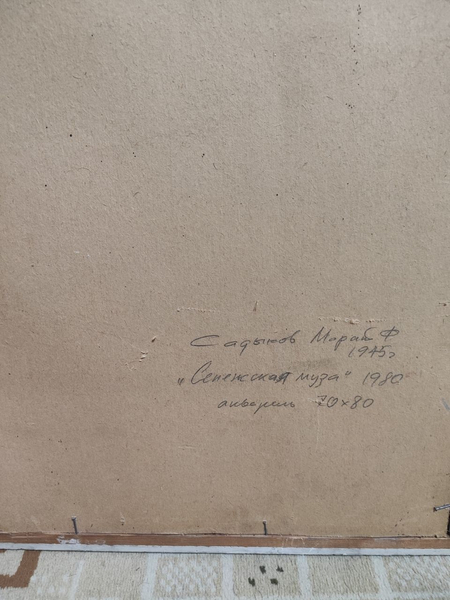 Садыков Марат Ф
1945г
„Сенежская муза" 1980
акварель 70х80